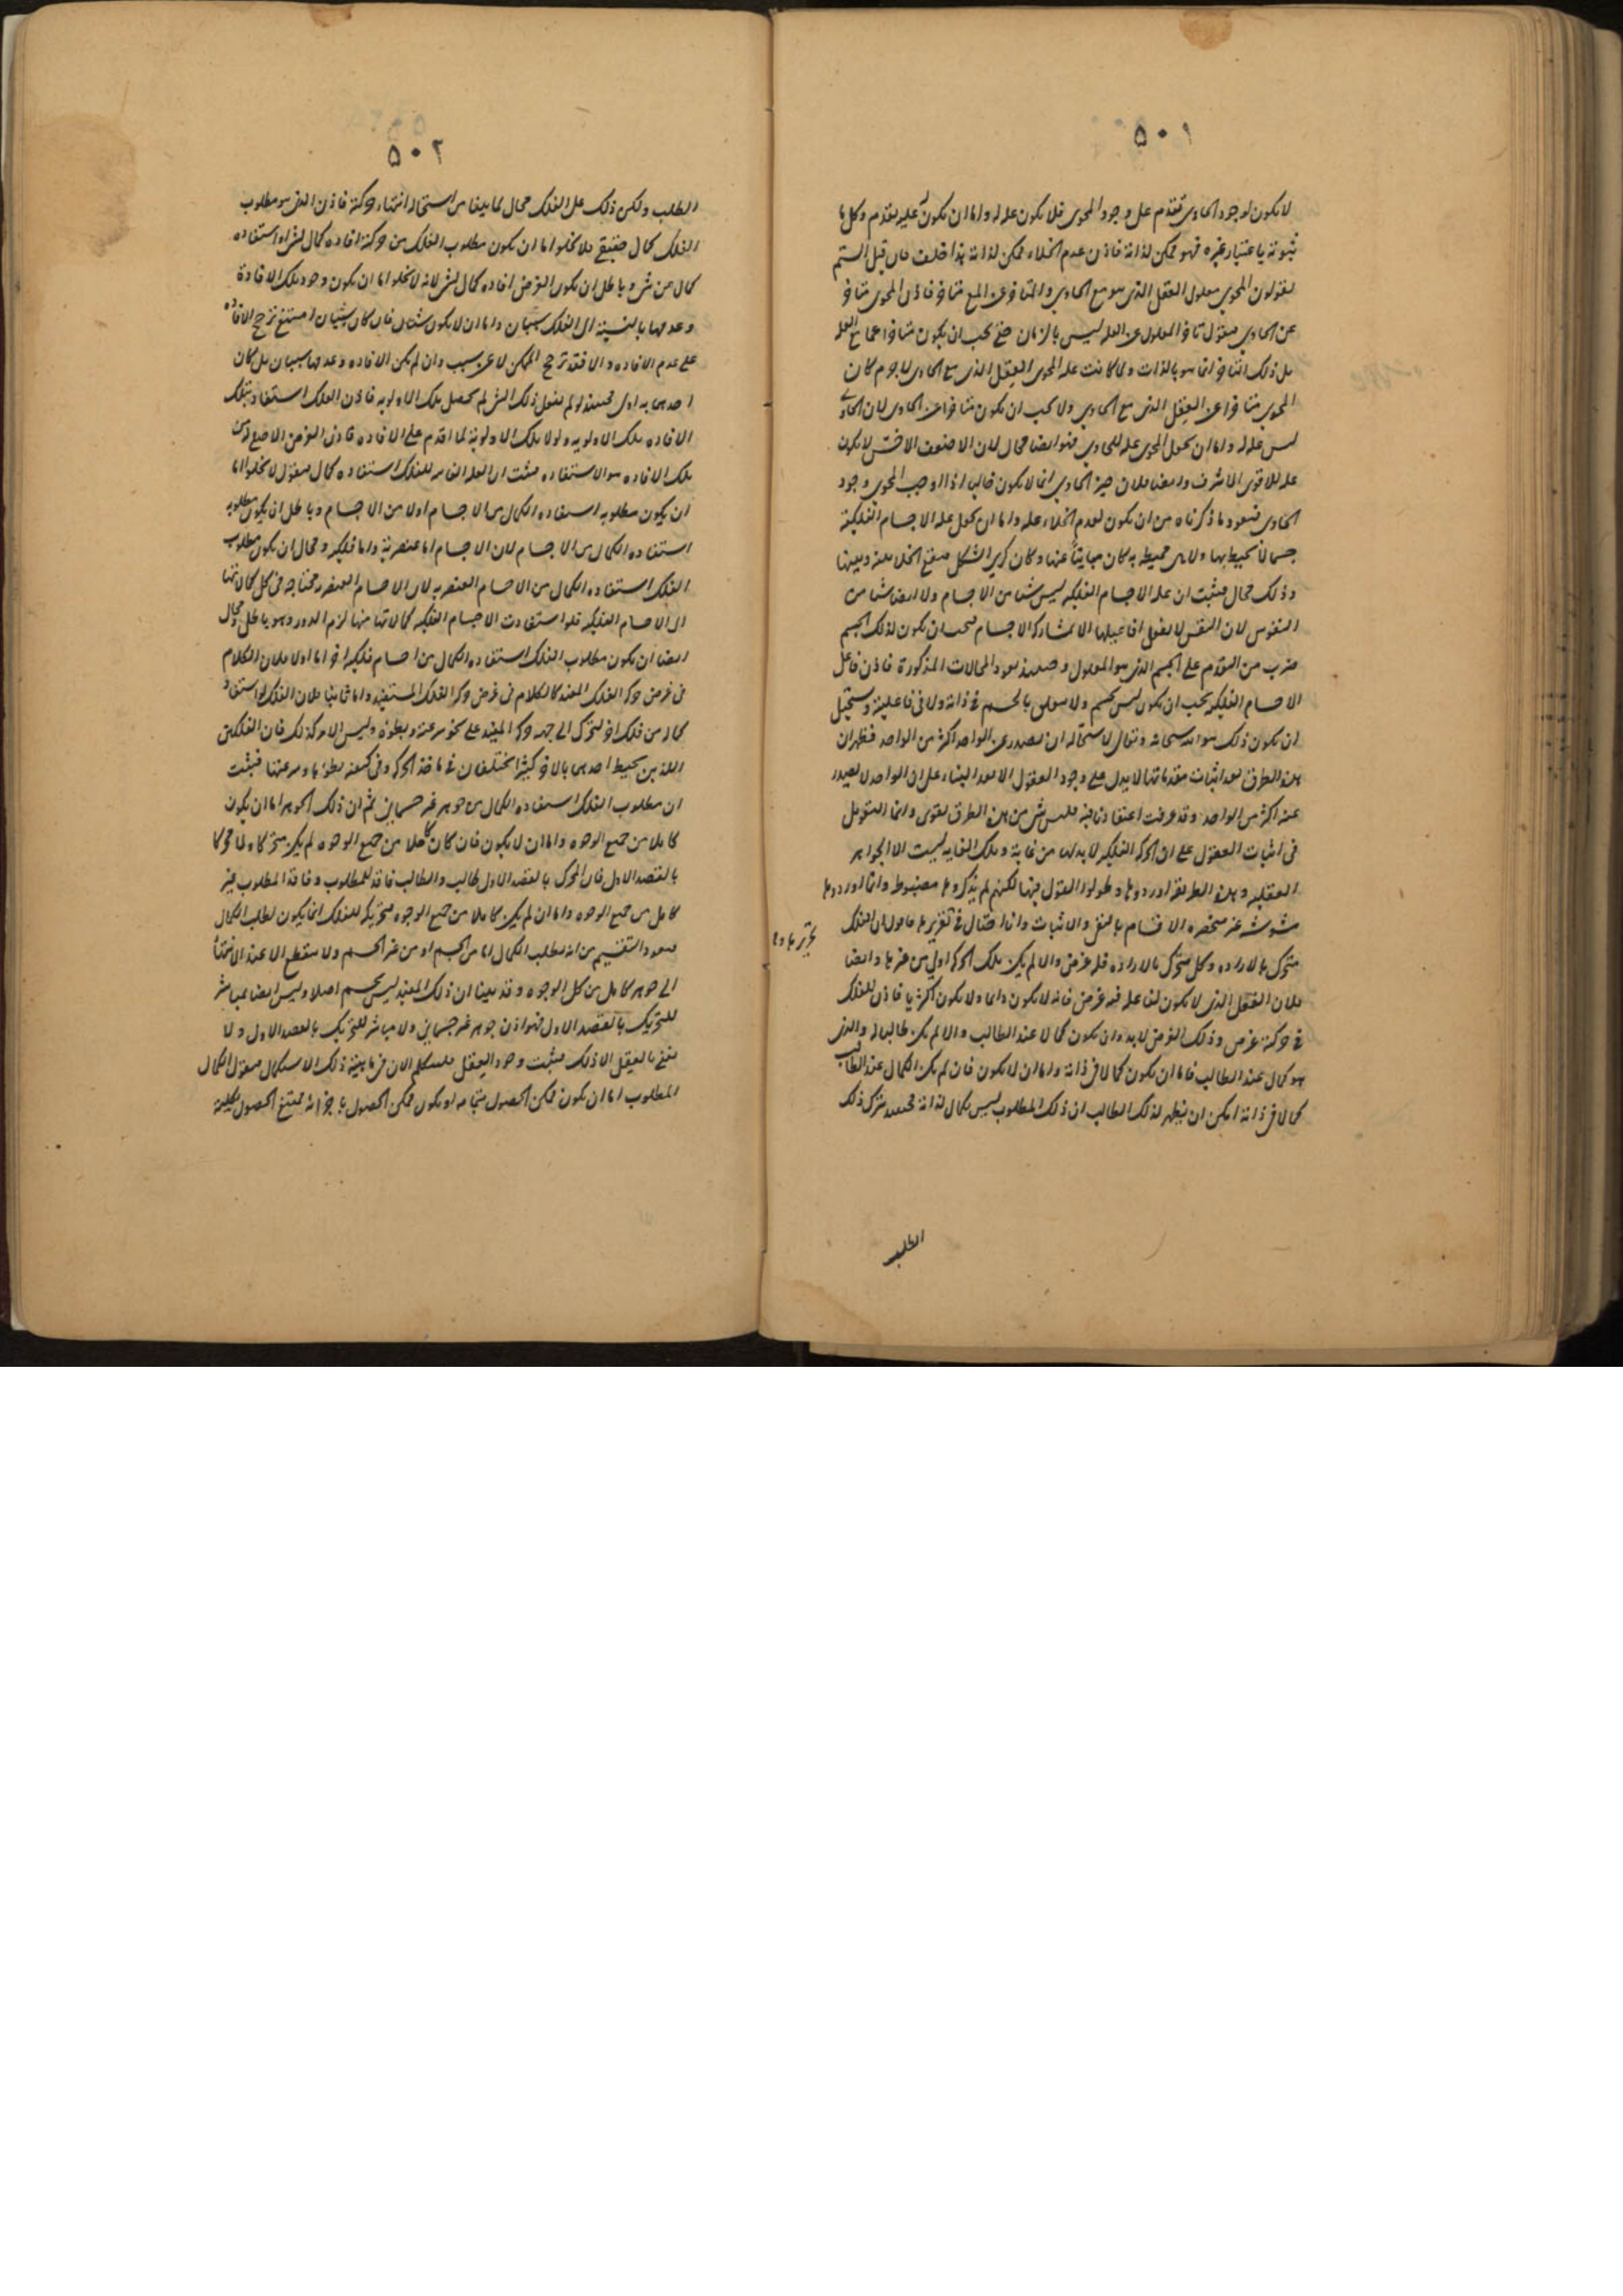 ٥٠١
لا يكون لوجود الحاوى تقدم على وجود المحوى فلا يكون علة له واما ان يكون عليه تقدم وكل ما
ثبوته باعتبار غيره فهو ممكن لذاته فاذن عدم الخلاء ممكن لذاته هذا خلف فان قيل الستم
تقولون المحوى معلول العقل الذى هو مع الحاوى والمتاخر عن المع متاخر فاذن المحوى متاخر
عن الحاوى فنقول تاخر المعلول عن العلة ليس بالزمان حتى يجب ان يكون متاخرا عما مع العلة
بل ذلك التاخر انما هو بالذات ولما كانت علة المحوى العقل الذى مع الحاوى لا جرم كان
المحوى متاخرا عن العقل الذى مع الحاوى ولا يجب ان يكون متاخرا عن الحاوى لان الحاوى
ليس علة له واما ان يجعل المحوى علة للحاوى فهو ايضا محال لان الاضعف الاخس لا يكون
علة للاقوى الاشرف وايضا فلان حيز الحاوى انما لا يكون خاليا اذا اوجب المحوى وجود
الحاوى فيعود ما ذكرناه من ان يكون لعدم الخلاء علة واما ان يجعل علة الاجسام الفلكية
جسما لا محيط بها ولا هى محيطة به كان مباينا عنها وكان كرى الشكل فيقع الخلا بينه وبينها
وذلك محال فيثبت ان علة الاجسام الفلكية ليس شيئا من الاجسام ولا ايضا شيئا من
النفوس لان النفس لا تفعل افاعيلها الا بمشاركة الاجسام فيجب ان يكون لذلك الجسم
ضرب من التقدم على الجسم الذى هو المعلول وحينئذ يعود المحالات المذكورة فاذن فاعل
الاجسام الفلكية يجب ان يكون ليس بجسم ولا متعلق بالجسم فى ذاته ولا فى فاعليته ويستحيل
ان يكون ذلك هو الله سبحانه وتعالى لاستحالة ان يصدر عن الواحد اكثر من الواحد فظهر ان
هذه الطرق بعد اثبات مقدماتها لا يدل على وجود العقول الا بعد البناء على ان الواحد لا يصدر
عنه اكثر من الواحد وقد عرفت اعتقادنا فيه فليس شىء من هذه الطرق يقوى وانما التعويل
فى اثبات العقول على ان الحركة الفلكية لا بد لها من غاية وتلك الغاية ليست الا الجواهر
العقلية وهذه الطريقة اوردوها وطولوا القول فيها لكنهم لم يذكروها مضبوطة وانما اوردوها
مشوشة غير منحصرة الاقسام بالنفى والاثبات وانا احتال فى تقريرها فاقول ان الفلك
متحرك بالارادة وكل متحرك بالارادة فله غرض والا لم يكن تلك الحركة اولى من غيرها وايضا
فلان الفعل الذى لا يكون لفاعله فيه غرض فانه لا يكون دائما ولا يكون اكثريا فاذن للفلك
فى حركته غرض وذلك الغرض لا بد وان يكون كمالا عند الطالب والا لم يكن طالبا له والذى
هو كمال عند الطالب فاما ان يكون كمالا فى ذاته واما ان لا يكون فان لم يكن الكمال عند الطالب
كمالا فى ذاته امكن ان يظهر لذلك الطالب ان ذلك المطلوب ليس بكمال لذاته فحينئذ يترك ذلك
الطلب
٥٠٢
الطلب ولكن ذلك على الفلك محال لما بينا من استحالة انتهاء حركته فاذن الذى هو مطلوب
الفلك كمال حقيقى فلا يخلو اما ان يكون مطلوب الفلك من حركته افادة كمال لشىء او استفادة
كمال من شىء وباطل ان يكون الغرض افادة كمال لشىء لانه لا يخلو اما ان يكون وجود تلك الافادة
وعدمها بالنسبة الى الفلك سيان واما ان لا يكون سيان فان كان سيان امتنع ترجح الافادة
على عدم الافادة والا فقد ترجح الممكن لا عن سبب وان لم يكن الافادة وعدمها سيان بل كان
احدهما به اولى فحينئذ لو لم يفعل ذلك الشىء لم يحصل تلك الاولوية فاذن الفلك استفاد بتلك
الافادة تلك الاولوية ولولا تلك الاولوية لما اقدم على الافادة فاذن الغرض الاصلى من
تلك الافادة هو الاستفادة فيثبت ان العلة الغائية للفلك استفادة كمال فنقول لا يخلو اما
ان يكون مطلوبه استفادة الكمال من الاجسام او لا من الاجسام وباطل ان يكون مطلوبه
استفادة الكمال من الاجسام لان الاجسام اما عنصرية واما فلكية ومحال ان يكون مطلوب
الفلك استفادة الكمال من الاجسام العنصرية لان الاجسام العنصرية محتاجة فى كل كمالاتها
الى الاجسام الفلكية فلو استفادت الاجسام الفلكية كمالاتها منها لزم الدور وهو باطل ومحال
ايضا ان يكون مطلوب الفلك استفادة الكمال من اجسام فلكية اخر اما اولا فلان الكلام
فى غرض حركة الفلك المفيد كالكلام فى غرض حركة الفلك المستفيد واما ثانيا فلان الفلك لو استفاد
كماله من فلك اخر لتحرك الى جهة حركة المفيد على نحو سرعته وبطؤه وليس الامر كذلك فان الفلكين
اللذين يحيط احدهما بالاخر كثيرا يختلفان فى ماخذ الحركة وفى كيفية بطؤها وسرعتها فيثبت
ان مطلوب الفلك استفادة الكمال من جوهر غير جسمانى ثم ان ذلك الجوهر اما ان يكون
كاملا من جميع الوجوه واما ان لا يكون فان كان كاملا من جميع الوجوه لم يكن متحركا ولا محركا
بالقصد الاول فان المحرك بالقصد الاول طالب والطالب فاقد للمطلوب وفاقد المطلوب غير
كامل من جميع الوجوه واما ان لم يكن كاملا من جميع الوجوه فتحريكه للفلك انما يكون لطلب الكمال
فيعود التقسيم من انه يطلب الكمال اما من الجسم او من غير الجسم ولا ينقطع الا عند الانتهاء
الى جوهر كامل من كل الوجوه وقد بينا ان ذلك المفيد ليس بجسم اصلا وليس ايضا بمباشر
للتحريك بالقصد الاول فهو اذن جوهر غير جسمانى ولا مباشر للتحريك بالقصد الاول ولا
نعنى بالعقل الا ذلك فيثبت وجود العقل فلنتكلم الان فى ماهية ذلك الاستكمال فنقول الكمال
المطلوب اما ان يكون ممكن الحصول بتمامه او يكون ممكن الحصول باجزائه ممتنع الحصول بكليته